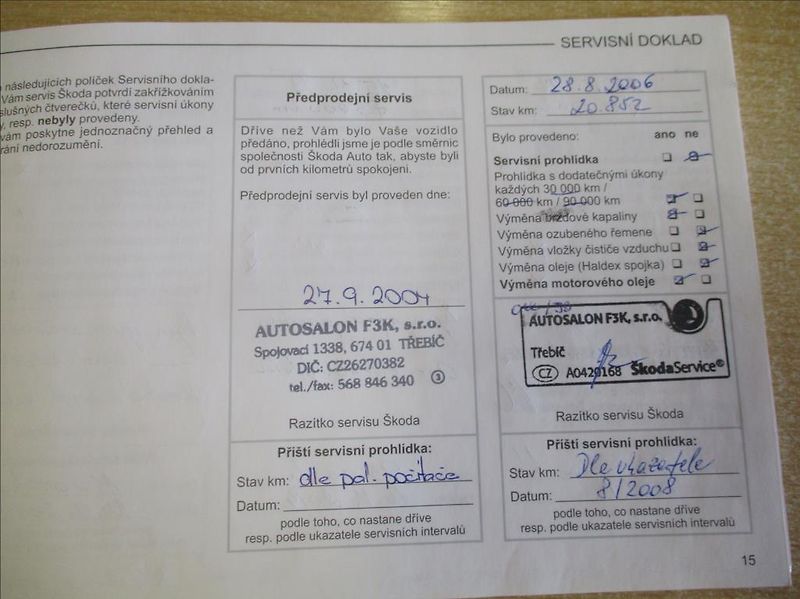 SERVISNÍ DOKLAD
následujících políček Servisního dokla-
Vám servis Škoda potvrdí zakřížkováním
slušných čtverečků, které servisní úkony
, resp. nebyly provedeny.
vám poskytne jednoznačný přehled a
rání nedorozumění.
Předprodejní servis
Dříve než Vám bylo Vaše vozidlo
předáno, prohlédli jsme je podle směrnic
společnosti Škoda Auto tak, abyste byli
od prvních kilometrů spokojeni.
Předprodejní servis byl proveden dne:
27.9.2004
AUTOSALON F3K, s.r.o.
Spojovací 1338, 674 01 TŘEBÍČ
DIČ: CZ26270382
tel./fax: 568 846 340 3
Razítko servisu Škoda
Příští servisní prohlídka:
Stav km: dle pal. počítače
Datum:
podle toho, co nastane dříve
resp. podle ukazatele servisních intervalů
Datum: 28.8.2006
Stav km: 20.852
Bylo provedeno: ano ne
Servisní prohlídka
Prohlídka s dodatečnými úkony
každých 30 000 km /
60 000 km / 90 000 km
Výměna brzdové kapaliny
Výměna ozubeného řemene
Výměna vložky čističe vzduchu
Výměna oleje (Haldex spojka)
Výměna motorového oleje
AUTOSALON F3K, s.r.o.
Třebíč
CZ A0420168 ŠkodaService®
Razítko servisu Škoda
Příští servisní prohlídka:
Stav km: Dle ukazatele
Datum: 8/2008
podle toho, co nastane dříve
resp. podle ukazatele servisních intervalů
15